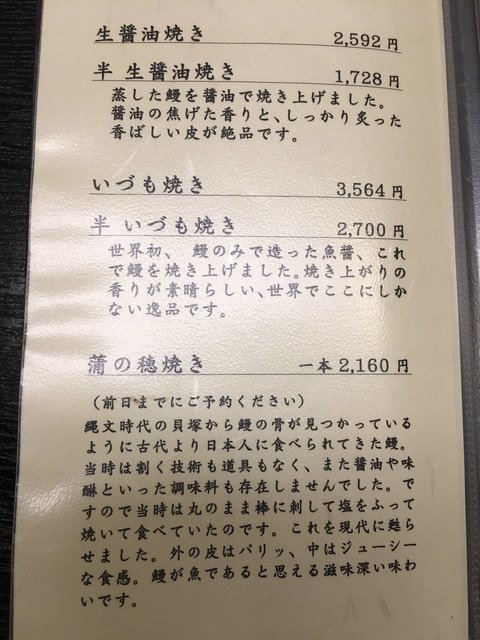 生醤油焼き 2,592 円
半 生醤油焼き 1,728 円
蒸した鰻を醤油で焼き上げました。
醤油の焦げた香りと、しっかり炙った
香ばしい皮が絶品です。
いづも焼き 3,564 円
半 いづも焼き 2,700 円
世界初、 鰻のみで造った魚醤、これ
で鰻を焼き上げました。焼き上がりの
香りが素晴らしい、世界でここにしか
ない逸品です。
蒲の穂焼き 一本 2,160 円
(前日までにご予約ください)
縄文時代の貝塚から鰻の骨が見つかっている
ように古代より日本人に食べられてきた鰻。
当時は割く技術も道具もなく、また醤油や味
醂といった調味料も存在しませんでした。で
すので当時は丸のまま棒に刺して塩をふって
焼いて食べていたのです。これを現代に甦ら
せました。外の皮はパリッ、中はジューシー
な食感。鰻が魚であると思える滋味深い味わ
いです。